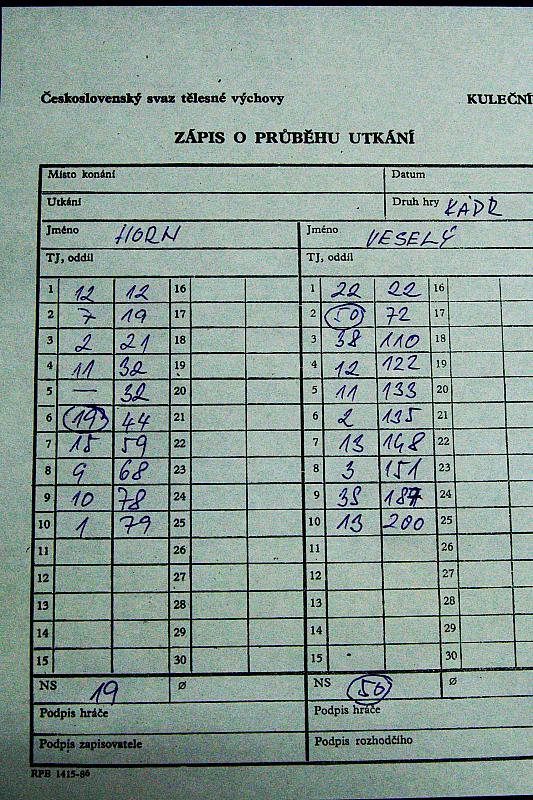 Československý svaz tělesné výchovy KULEČNÍ
ZÁPIS O PRŮBĚHU UTKÁNÍ
Místo konání Datum
Utkání Druh hry KÁDR
Jméno HORN Jméno VESELÝ
TJ, oddíl TJ, oddíl
1 12 12 16 1 22 22 16
2 7 19 17 2 50 72 17
3 2 21 18 3 38 110 18
4 11 32 19 4 12 122 19
5 — 32 20 5 11 133 20
6 19 44 21 6 2 135 21
7 15 59 22 7 13 148 22
8 9 68 23 8 3 151 23
9 10 78 24 9 187 24
10 1 79 25 10 13 200 25
11 26 11 26
12 27 12 27
13 28 13 28
14 29 14 29
15 30 15 30
NS 19 Ø NS 50 Ø
Podpis hráče Podpis hráče
Podpis zapisovatele Podpis rozhodčího
RPB 1415-86